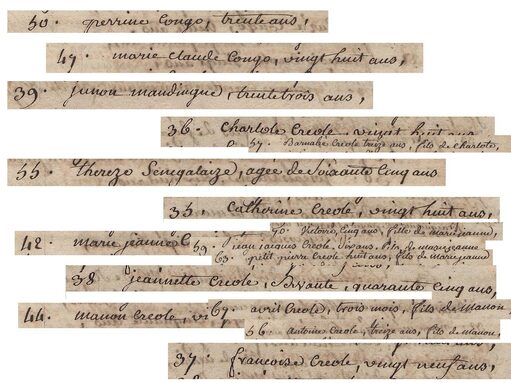 50. perrine Congo, trente ans,
47. marie claude Congo, vingt huit ans,
39. junon mandingue, trente trois ans,
36. Charlote Creole vingt huit ans
57. Barnabé Creole treize ans, fils de Charlote,
55. thereze Senegalaize, agée de Soixante Cinq ans
35. Catherine Creole, vingt huit ans,
70. Victoire, Cinq ans, fille de marie jeanne
42. marie jeanne C
59. jean jacques Creole Six ans, fils de marie jeanne
63. petit pierre Creole huit ans, fils de marie jeanne
38. jeannette Creole, Servante, quarante Cinq ans,
67. avril Creole, trois mois, fils de manon,
44. manon Creole, vi
56. Antoine Creole, treize ans, fils de manon,
37. francoise Creole, vingt neuf ans,